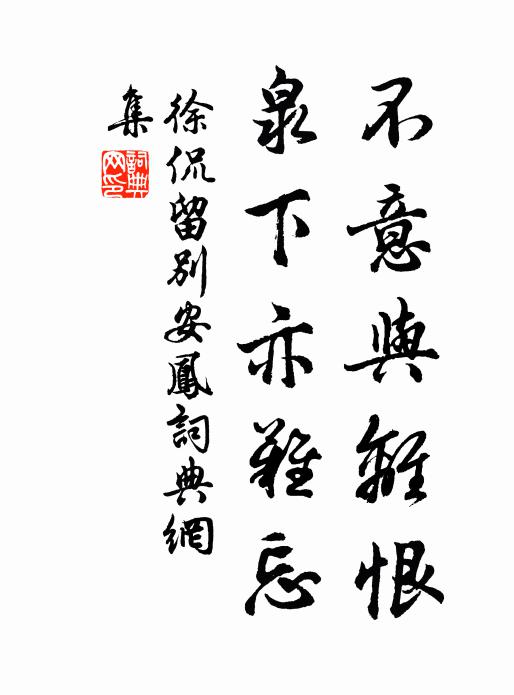 不意與離恨
泉下亦難忘
徐侃留別安鳳詞典網
集
詞典
网印